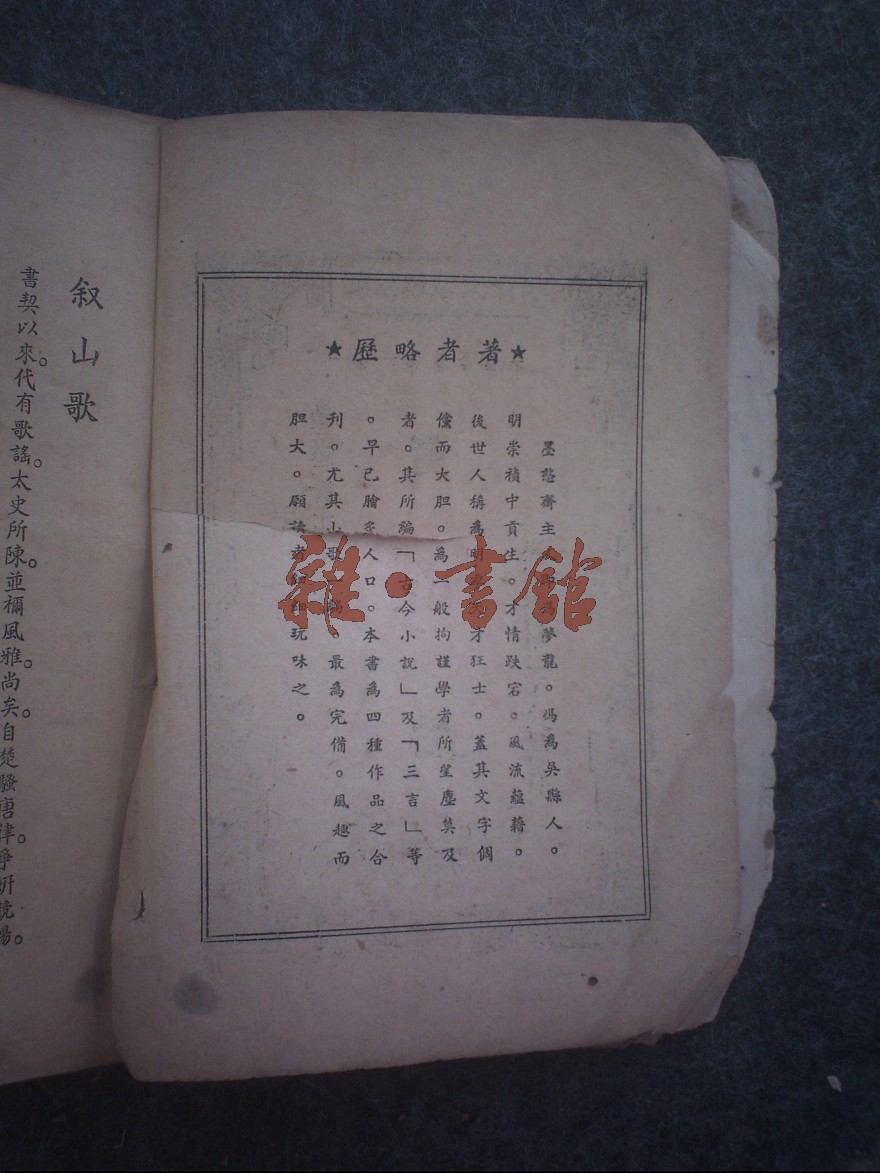 ★著者略歷★
墨憨齋主人馮夢龍。馮為吳縣人。
明崇禎中貢生。才情跌宕。風流蘊藉。
後世人稱為明才狂士。蓋其文字倜
儻而大胆。為一般拘謹學者所望塵莫及
者。其所編「古今小說」及「三言」等
。早已膾炙人口。本書為四種作品之合
刊。尤其山歌。最為完備。風趣而
胆大。願讀者細細玩味之。
叙山歌
書契以來。代有歌謠。太史所陳。並稱風雅。尚矣。自楚騷唐律。爭妍競暢。
雜·書館